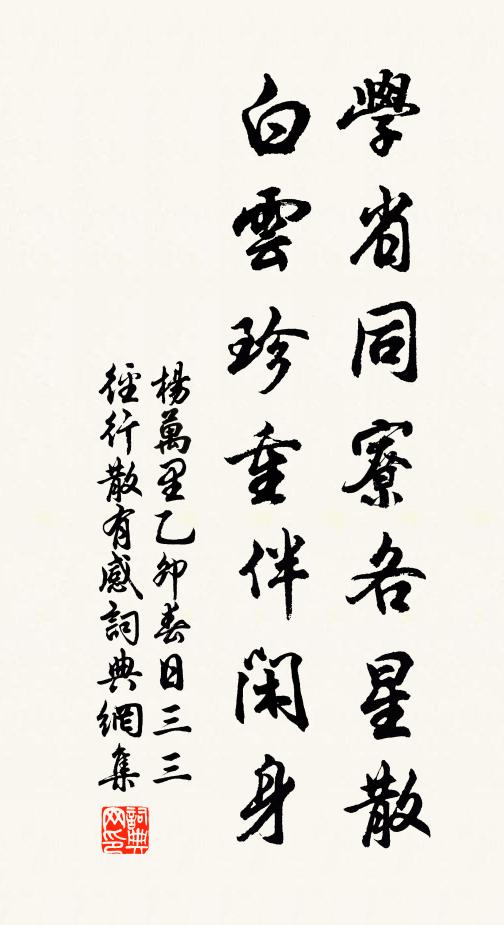 學省同寮各星散
白雲珍重伴閑身
楊萬里乙卯春日三三
徑行散有感詞典網集
詞典
网印